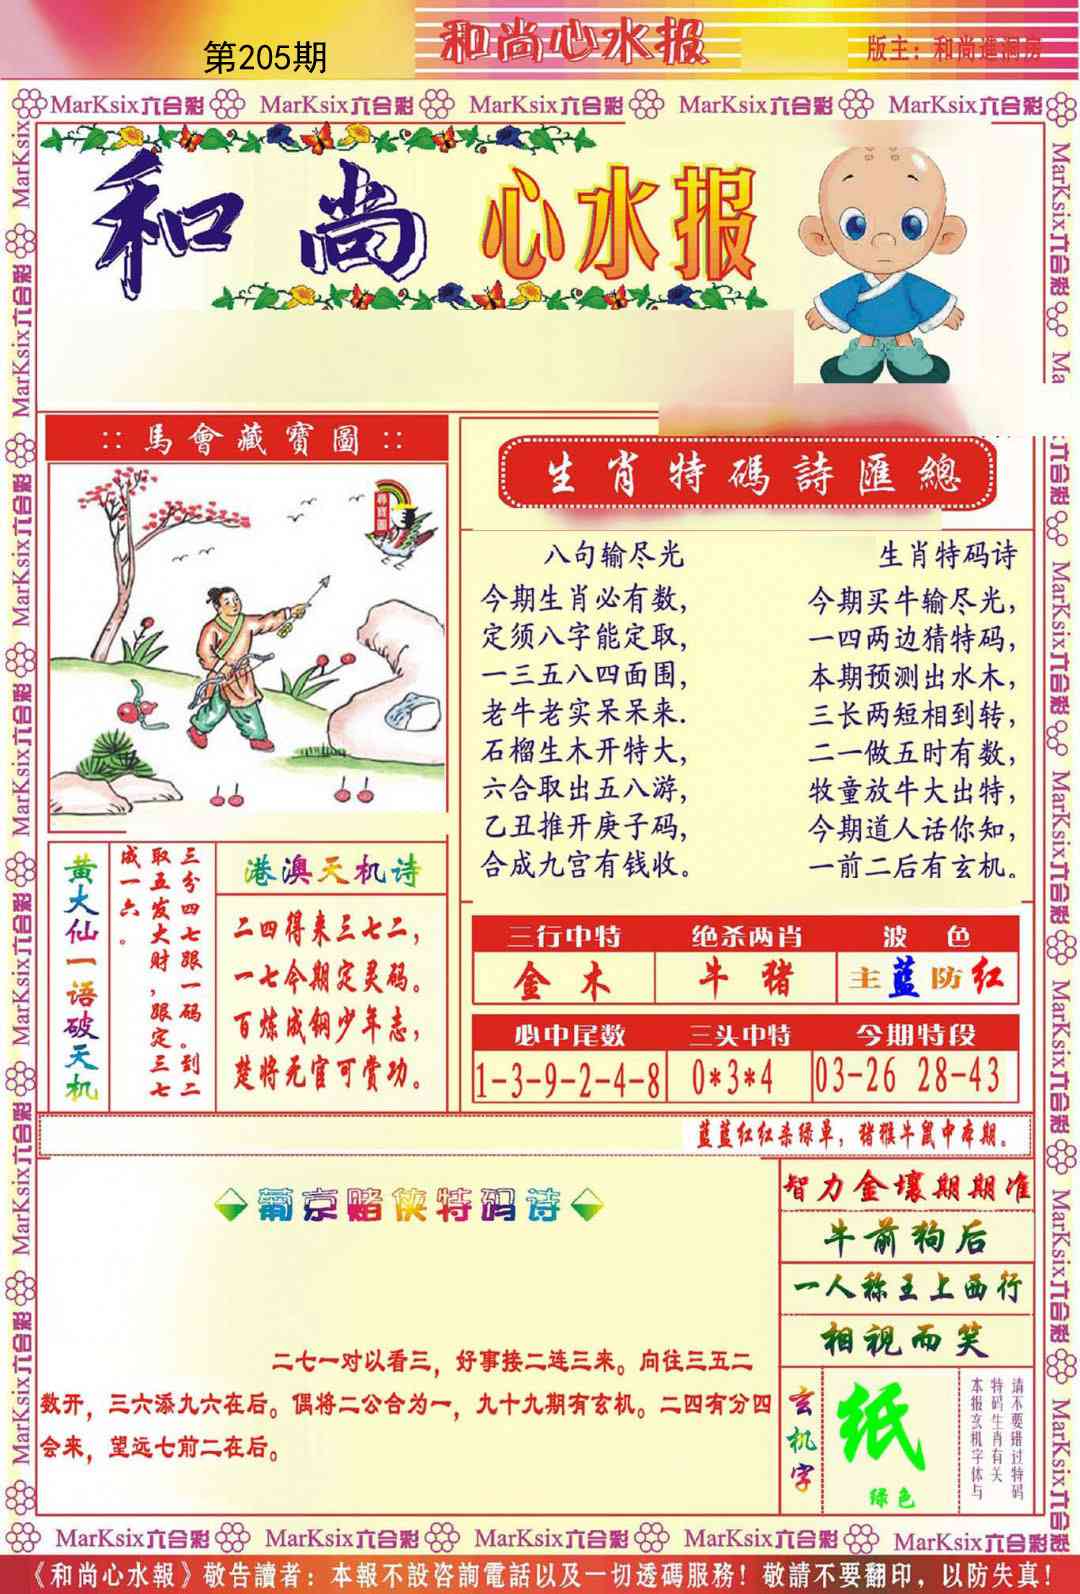 第205期
和尚心水报
版主：和尚進洞房
MarKsix六合彩 MarKsix六合彩 MarKsix六合彩 MarKsix六合彩 MarKsix六合彩
和尚心水报
::馬會藏寶圖::
尋寶圖
生肖特碼詩匯總
八句输尽光
今期生肖必有数，
定须八字能定取，
一三五八四面围，
老牛老实呆呆来.
石榴生木开特大，
六合取出五八游，
乙丑推开庚子码，
合成九宫有钱收。
生肖特码诗
今期买牛输尽光，
一四两边猜特码，
本期预测出水木，
三长两短相到转，
二一做五时有数，
牧童放牛大出特，
今期道人话你知，
一前二后有玄机。
黄大仙一语破天机
三分四七跟一码。到二
取五发大财，跟定三七
成一六。
港澳天机诗
二四得来三七二，
一七今期定灵码。
百炼成钢少年志，
楚将元官可赏功。
三行中特 绝杀两肖 波色
金木 牛猪 主蓝防红
必中尾数 三头中特 今期特段
1-3-9-2-4-8 0*3*4 03-26 28-43
蓝蓝红红杀绿单，猪猴牛鼠中本期。
葡京赌侠特码诗
二七一对以看三，好事接二连三来。向往三五二
数开，三六添九六在后。偶将二公合为一，九十九期有玄机。二四有分四
会来，望远七前二在后。
智力金壤期期准
牛前狗后
一人称王上西行
相视而笑
玄机字
纸
绿色
请不要错过特码
特码生肖有关
本报玄机字体与
MarKsix六合彩 MarKsix六合彩 MarKsix六合彩 MarKsix六合彩 MarKsix六合彩
《和尚心水報》敬告讀者：本報不設咨詢電話以及一切透碼服務！敬請不要翻印，以防失真！